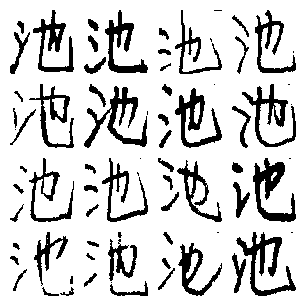 池池池池
池池池池
池池池池
池池池池